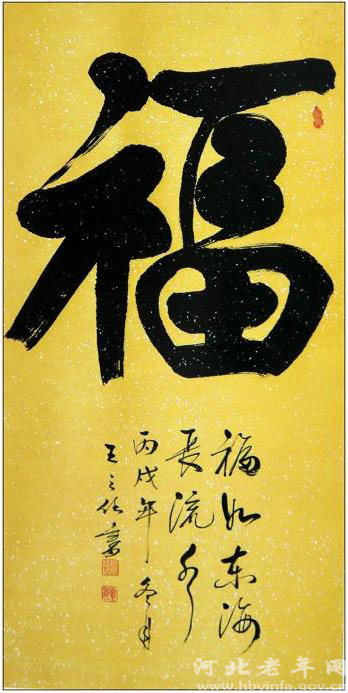 福
福如东海
長流水
丙戌年冬月
王之
書
河北老年网
www.hbyinfa.gov.cn